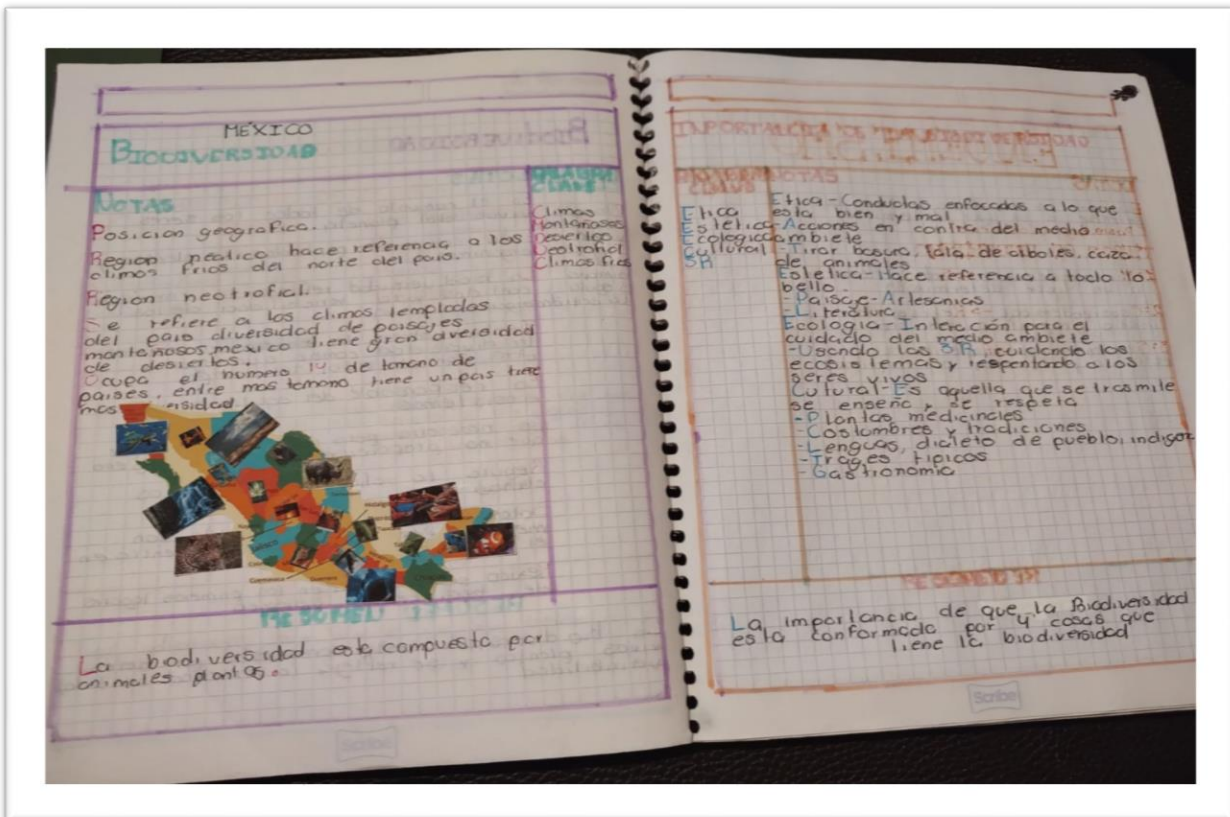 MÉXICO
BIODIVERSIDAD
NOTAS
Posicion geografica.
Region neatica hace referencia a los
climas frios del norte del pais.
Region neotrofical.
Se refiere a los climas templados
del pais diversidad de paisajes
montañosos, mexico tiene gran diversidad
de desiertos.
Ocupa el numero 14 de tamano de
paises, entre mas tamono tiene un pais tiene
mas ersidad
PALABRA
CLAVE
Climas
Montañosos
Decierlos
Climas frios
Jalisco
Guerrero
RESUMEN
La biodiversidad esta compuesta por
animales plantas.
Scribe
IMPORTANCIA DE BIODIVERSIDAD
PALABRA
CLAVE
Etica
Estética
Ecologico
Cultural
5R
NOTAS
Etica-Conductas enfocadas a lo que
esta bien y mal
-Acciones en contra del medio
ambiete
-Tirar basura, tala de arboles, caza
de animales
Estetica-Hace referencia a todo lo
bello.
-Paisaje-Artesanias
-Literatura
Ecologia-Interacción para el
cuidado del medio ambiete
-Usando las 5R, cuidando los
ecosistemas y respentando a los
seres vivos
Cultural-Es aquella que se trasmite
se enseña y se respeta
-Plantas medicinales
-Costumbres y tradiciones
-Lenguas, dialeto de pueblo, indigo
-Trages tipicos
-Gastronomia
RESUMEN
La importancia de que la Biodiversidad
esta conformada por 4 cosas que
tiene la biodiversidad
Scribe